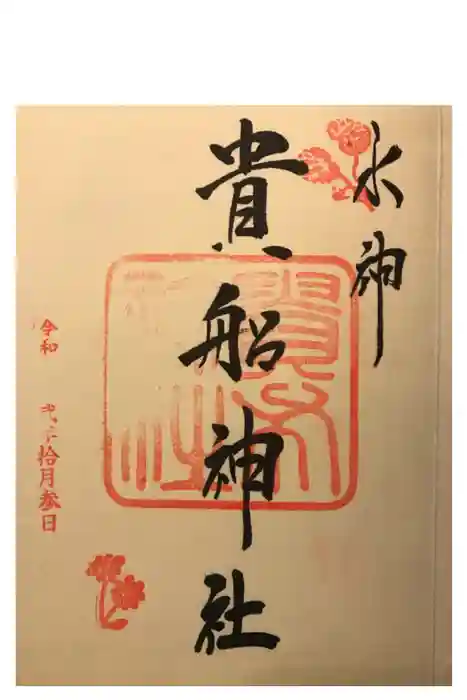 水神
貴船神社
令和 弐年拾月参日